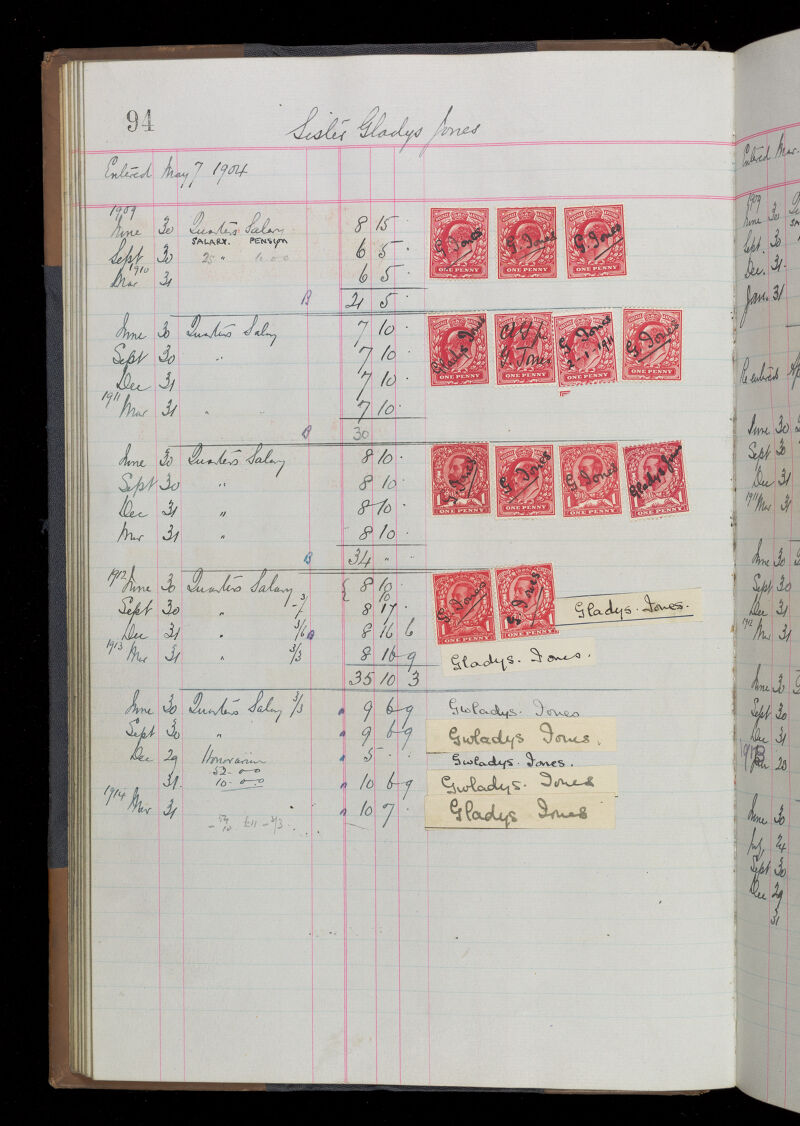 94
Sister Gladys Jones
Entered May 7 1904
1909
June 30 Quarters Salary 8 15 .
SALARY. PENSION
Sept 30 25 " 6 5 .
1910
Mar 31 6 5 .
B 21 5 .
G. Jones
ONE PENNY
G. Jones
ONE PENNY
G. Jones
ONE PENNY
June 30 Quarters Salary 7 10 .
Sept 30 " 7 10 .
Dec 31 7 10 .
1911
Mar 31 " 7 10 .
B 30
Gladys Jones
ONE PENNY
G. Jones
ONE PENNY
G. Jones
2-1-1911
ONE PENNY
G. Jones
ONE PENNY
June 30 Quarters Salary 8 10 .
Sept 30 " 8 10 .
Dec 31 " 8 10 .
Mar 31 " 8 10 .
B 34 " .
G. Jones
1 ONE PENNY 1
G. Jones
ONE PENNY
G. Jones
1 ONE PENNY 1
Gladys Jones
1 ONE PENNY 1
1912
June 30 Quarters Salary { 8 10
Sept 30 " 8 17 .
Dec 31 " 3/6 B 8 16 6
1913
Mar 31 " 3/3 8 16 9
35 10 3
G. Jones
1 ONE PENNY 1
G. Jones
1 ONE PENNY 1
Gladys. Jones.
Gladys. Jones.
June 30 Quarters Salary 3/3 " 9 6 9 Gwladys. Jones
Sept 30 " " 9 6 9 Gwladys Jones.
Dec 29 Honorarium " 5 . . Gwladys. Jones.
52-0-0
31. 10-0-0 " 10 6 9 Gwladys. Jones
1914
Mar 31 " 10 7 . Gladys Jones
Entered Mar.
1909
June 30
Sept. 30
Dec. 31
Jan. 31
Re entered
June 30
Sept 30
Dec 31
1911 Mar 31
June 30
Sept 30
Dec 31
1912 Mar 31
June 30
Sept 30
Dec 31
20
June 30
July 24
Sept 30
Dec 29
31